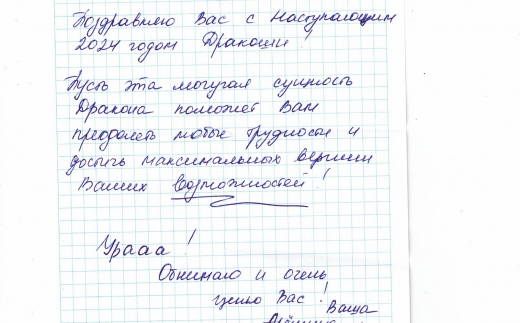 Поздравляю Вас с Наступающим
2024 годом Дракоши!
Пусть эта могучая сущность
Дракона поможет Вам
преодолеть любые трудности и
достичь максимальных вершин
Ваших возможностей!
Урааа!
Обнимаю и очень
целую Вас!
Ваша